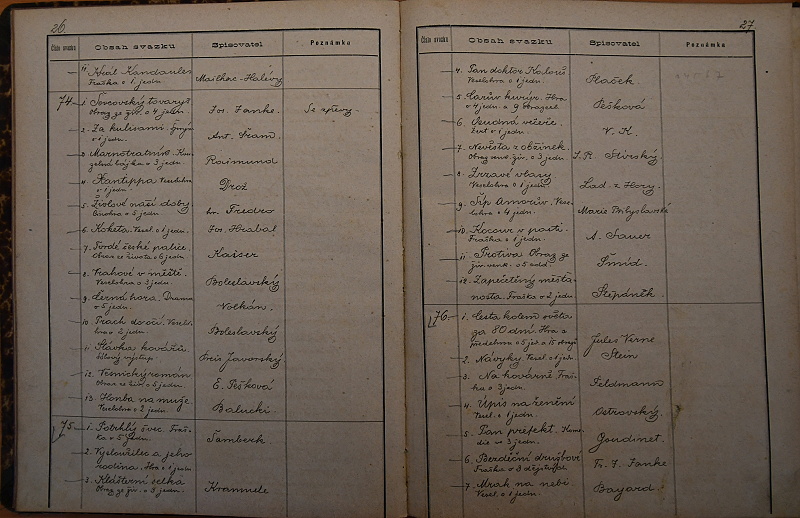 26.
Číslo svazku Obsah svazku Spisovatel Poznámka
11. Král Kandaules Meilhac-Halévy
Fraška o 1 jedn.
74. 1. Ševcovský tovaryš Jos. Fanke. Se zpěvy.
Obraz ze živ. o 4 jedn.
2. Za kulisami. Ant. Šram.
o 1 jedn.
3. Marnotratník. Raimund
bájka o 3 jedn.
4. Xantippa Veselohra Drož
o 1 jedn.
5. naší doby hr. Fredro
Činohra o 5 jedn.
6. Koketa. Vesel. o 1 jedn. Jos. Hrabal
7. Tvrdé české palice. Kaiser
Obraz ze života o 6 jedn.
8. Vrahové v městě. Boleslavský
Veselohra o 3 jedn.
9. Černá hora. Drama Volkán.
o 5 jedn.
10. Prach do očí. Veselo- Boleslavský
hra o 2 jedn.
11. Slávka kovářů. Javorský
výstup.
12. Vesnický román E. Pešková
Obraz ze živ. o 5 jedn.
13. Honba na muže Balucki
Veselohra o 2 jedn.
75 1. Potrhlý švec. Fraš- Šamberk
ka o 5 jedn.
2. Vysloužilec a jeho
rodina. Hra o 1 jedn.
3. Klášterní selka
Obraz ze živ. o 5 jedn.
27
Číslo svazku Obsah svazku Spisovatel Poznámka
4. Pan doktor Plaček
Veselohra o 1 jedn.
5. Carův kurýr. Hra Pešková
o 4 jedn. a 9 obrazech
6. Osudná věčeře. V. K.
Žert o 1 jedn.
7. Nevěsta z obžinek. J. R. Štírský
Obraz venk. živ. o 3 jedn.
8. Zrzavé vlasy Lad. z Hory.
Veselohra o 1 jedn.
9. Šíp Amorův. Vese- Marie Přibyslavská
lohra o 4 jedn.
10. Kocour v pasti. A. Sauer
Fraška o 1 jedn.
11. Protiva Obraz ze Šmíd.
živ. venk. o 5 odd.
12. Zapečetěný měšťa- Štěpáněk.
nosta. Fraška o 2 jedn.
76. 1. Cesta kolem světa Jules Verne
za 80 dní. Hra s
předehrou o 5 jed. a 15 obrazích
2. Návyky Vesel. o 1 jedn. Stein
3. Na hovárně Fraš- Feldmann
ka o 3 jedn.
4. Úpis na ženění Ostrovský.
Vesel. o 1 jedn.
5. Pan prefekt. Kome- Gondinet.
die ve 3 jedn.
6. Berděční družbové Fr. J. Fanke
Fraška o 3 dějstvích
7. Mrak na nebi Bayard.
Vesel. o 1 jedn.